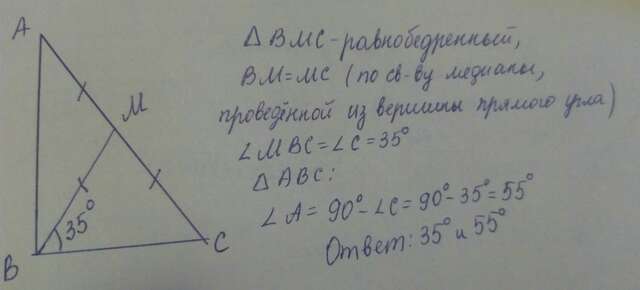 A
M
35°
B
C
Δ BMC - равнобедренный,
BM = MC (по св-ву медианы,
проведённой из вершины прямого угла)
∠MBC = ∠C = 35°
Δ ABC:
∠A = 90° - ∠C = 90° - 35° = 55°
Ответ: 35° и 55°